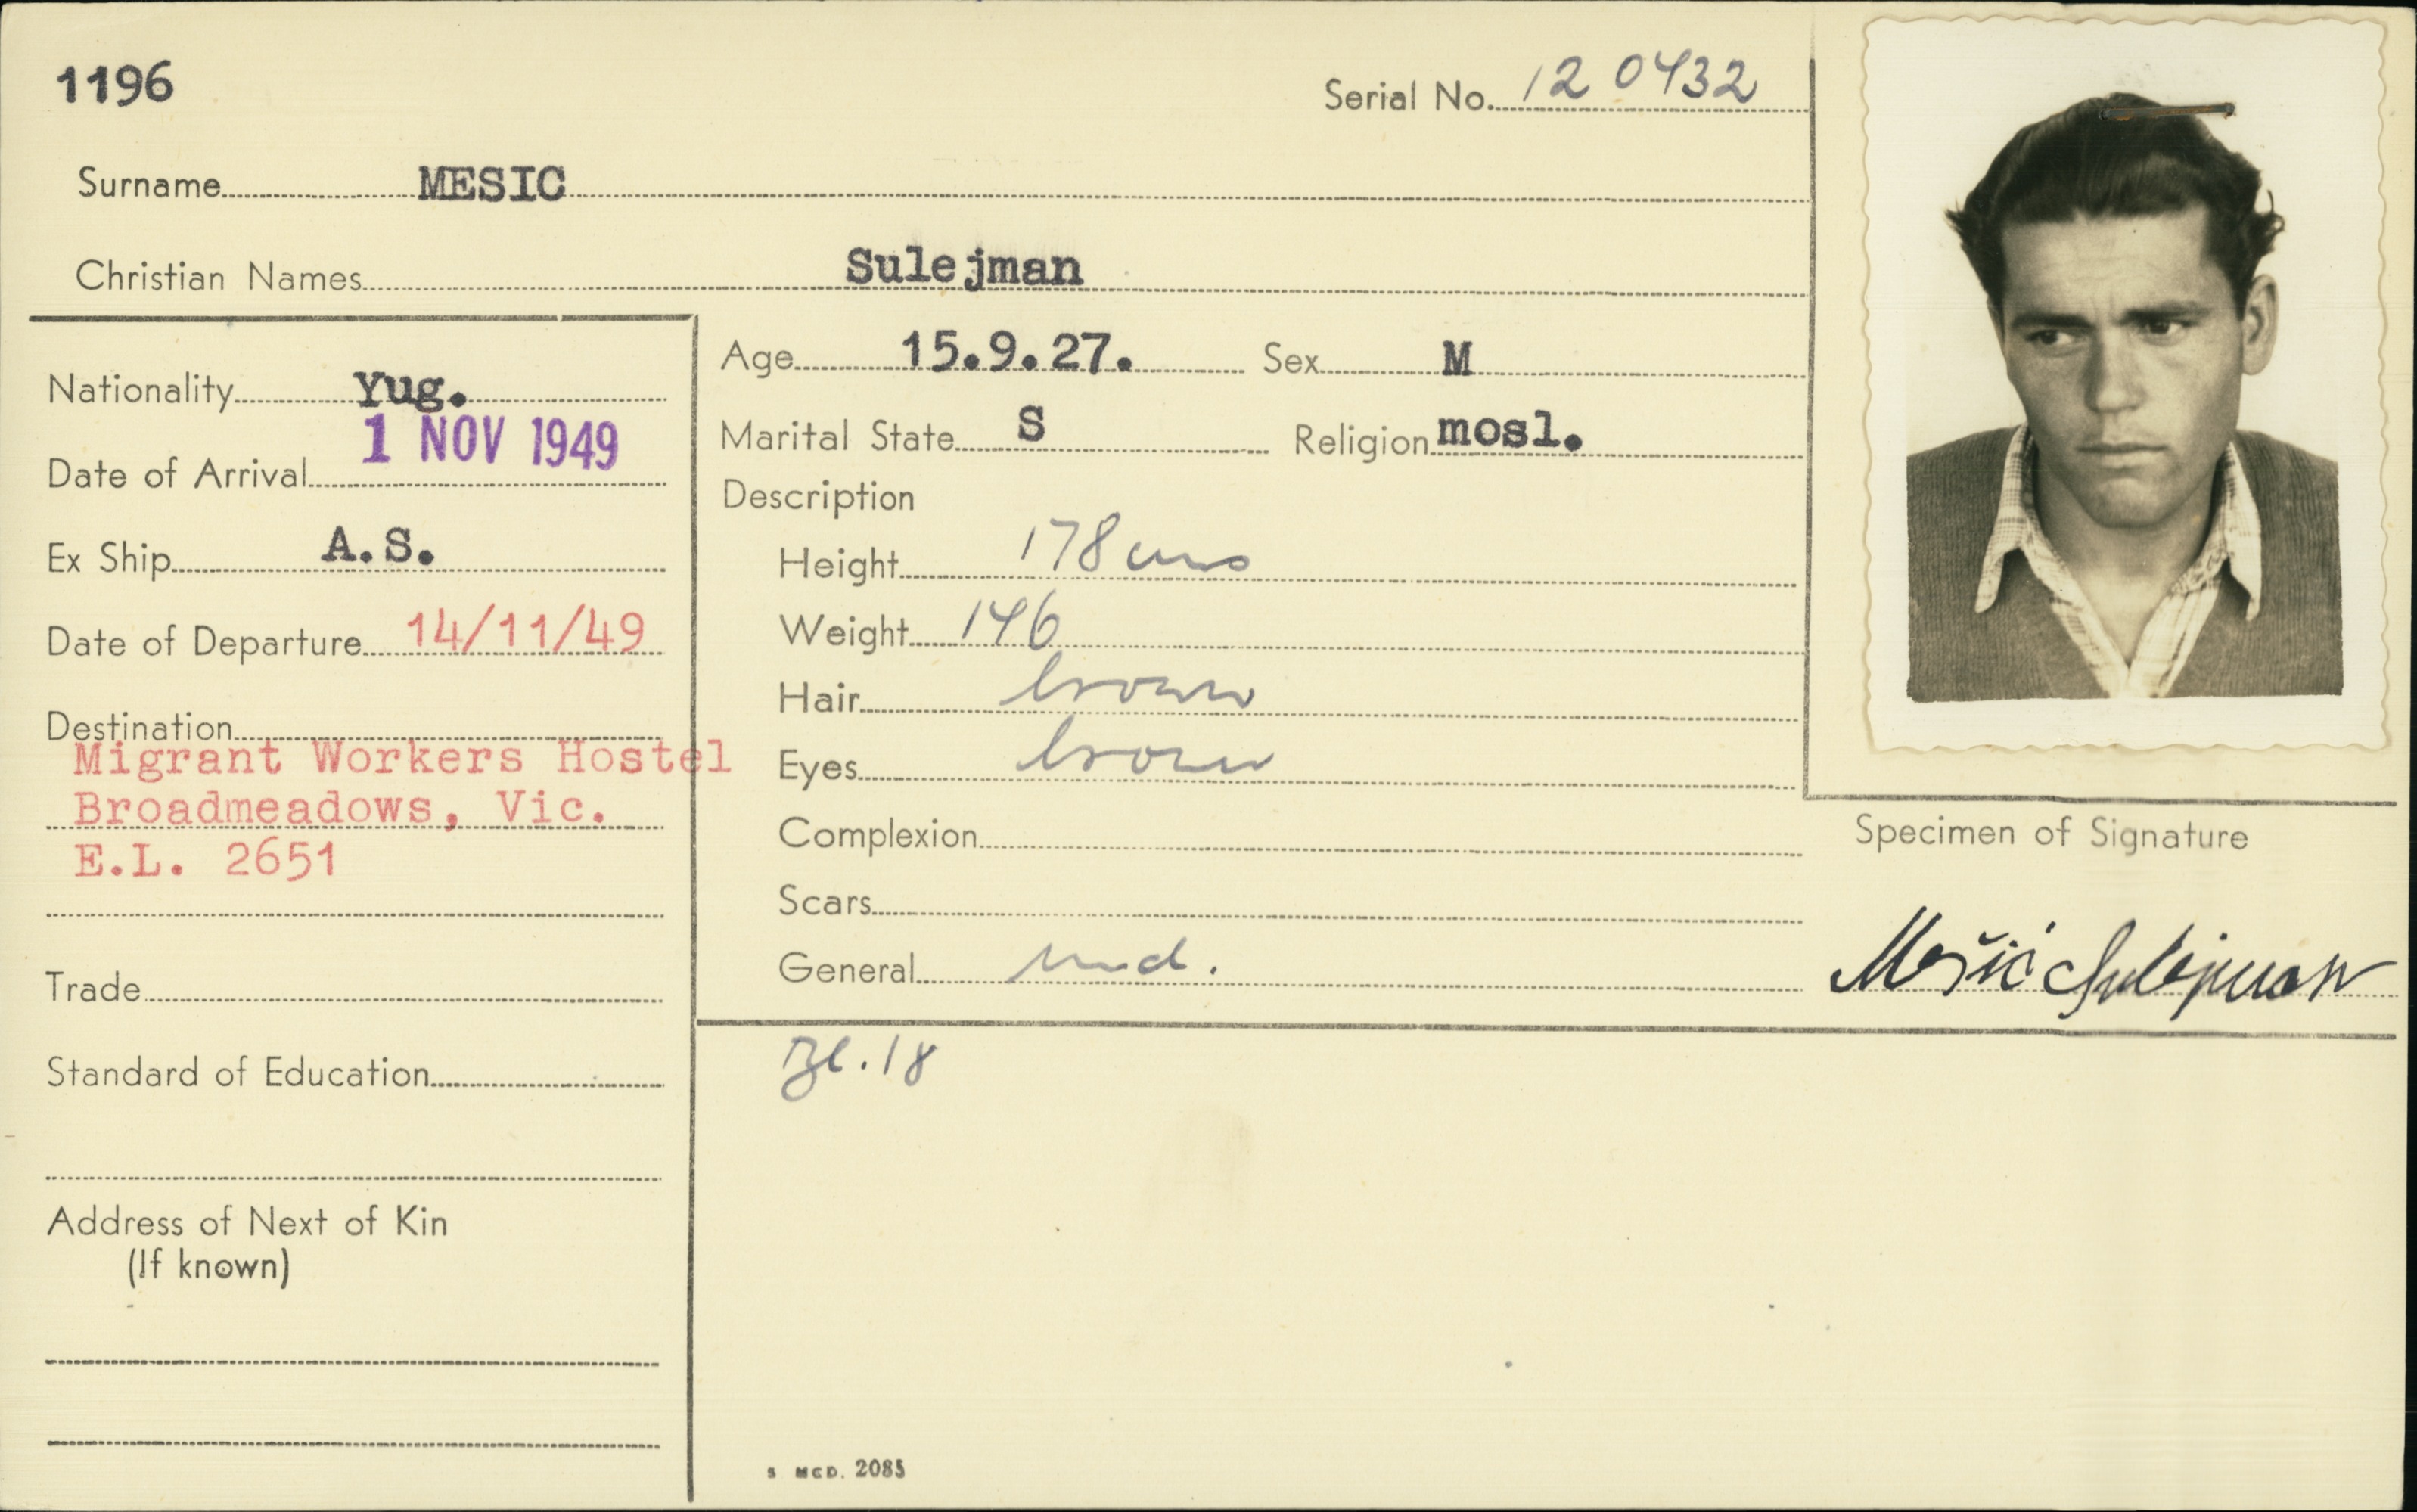 1196
Serial No. 12 0432
Surname MESIC
Christian Names Sulejman
Nationality Yug.
Date of Arrival 1 NOV 1949
Ex Ship A.S.
Date of Departure 14/11/49
Destination
Migrant Workers Hostel
Broadmeadows, Vic.
E.L. 2651
Trade
Standard of Education
Address of Next of Kin
(If known)
Age 15.9.27. Sex M
Marital State S Religion mosl.
Description
Height 178 cms
Weight 146
Hair brown
Eyes brown
Complexion
Scars
General
Bl. 18
S MCD. 2085
Specimen of Signature
Mešić Sulejman